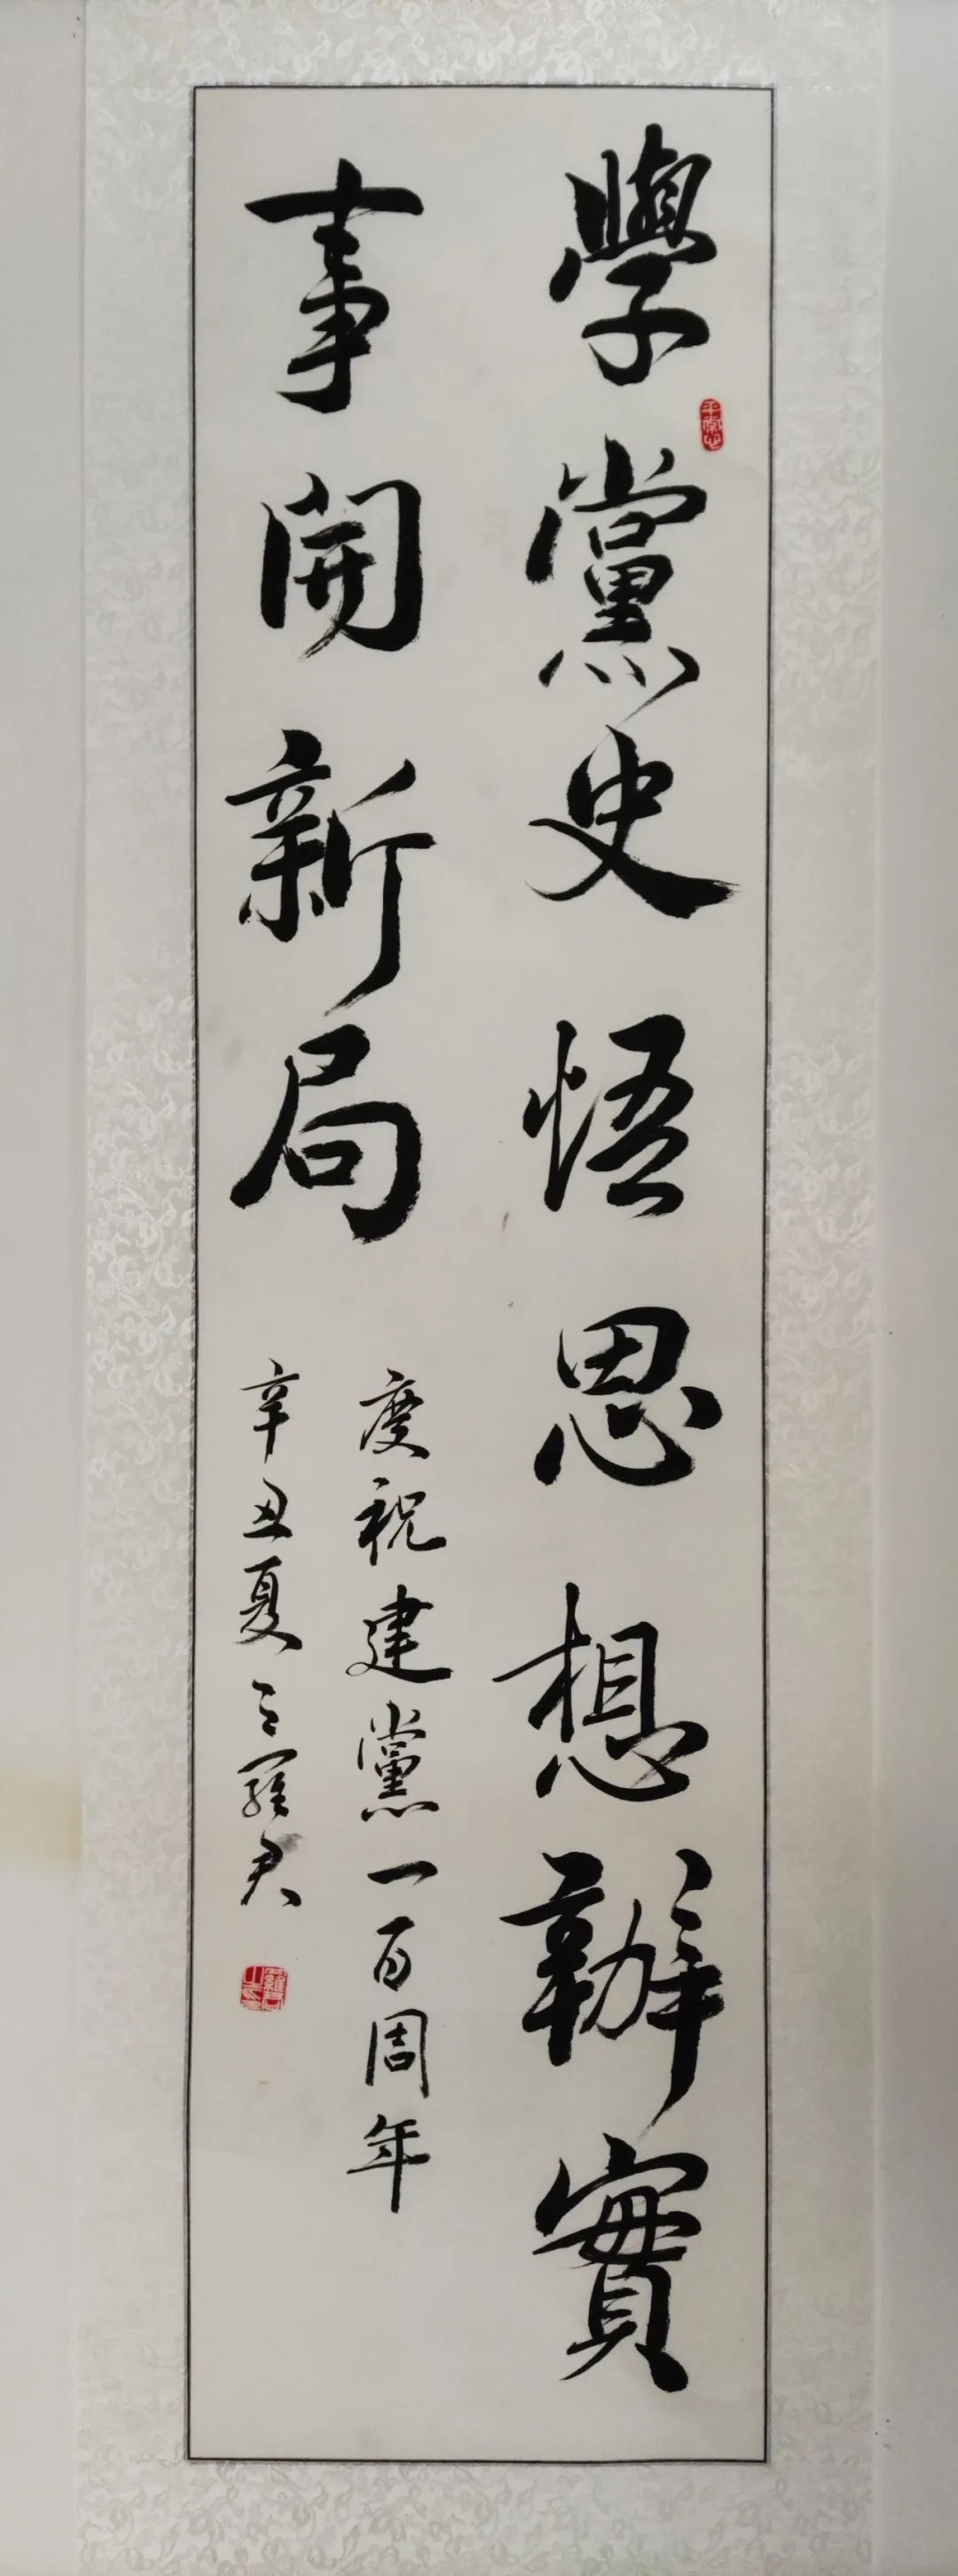 學黨史悟思想辦實
事開新局
慶祝建黨一百周年
辛丑夏 羅君
平常心